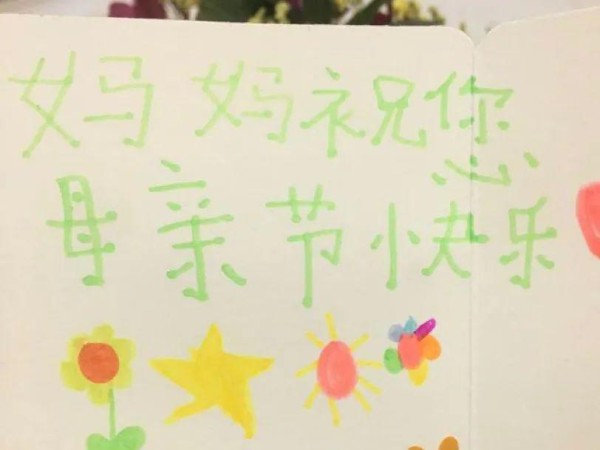 妈妈祝您
母亲节快乐